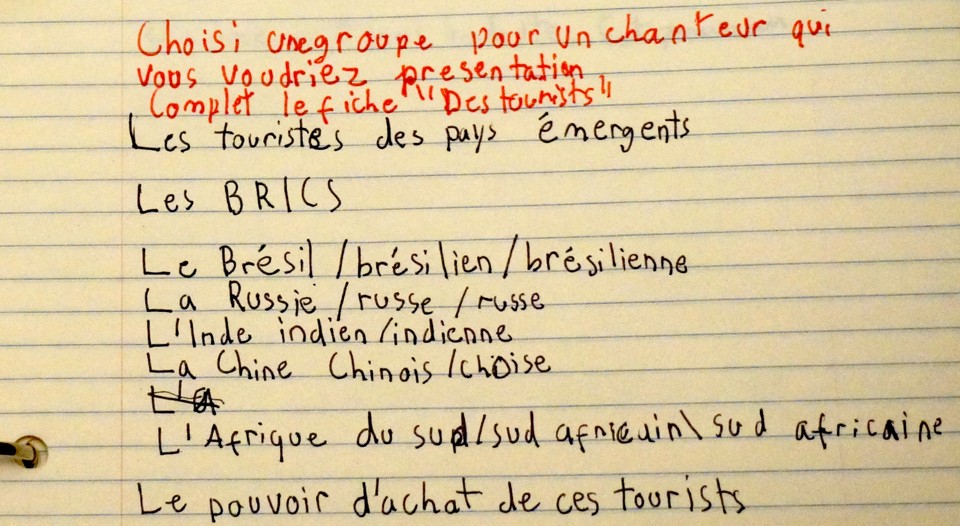 Choisi unegroupe pour un chanteur qui
vous voudriez presentation
Complet le fiche "Des tourists"
Les touristes des pays émergents
Les BRICS
Le Brésil /brésilien/brésilienne
La Russie /russe /russe
L'Inde indien/indienne
La Chine Chinois/choise
L'Afrique du sud/sud africain\ sud africaine
Le pouvoir d'achat de ces tourists